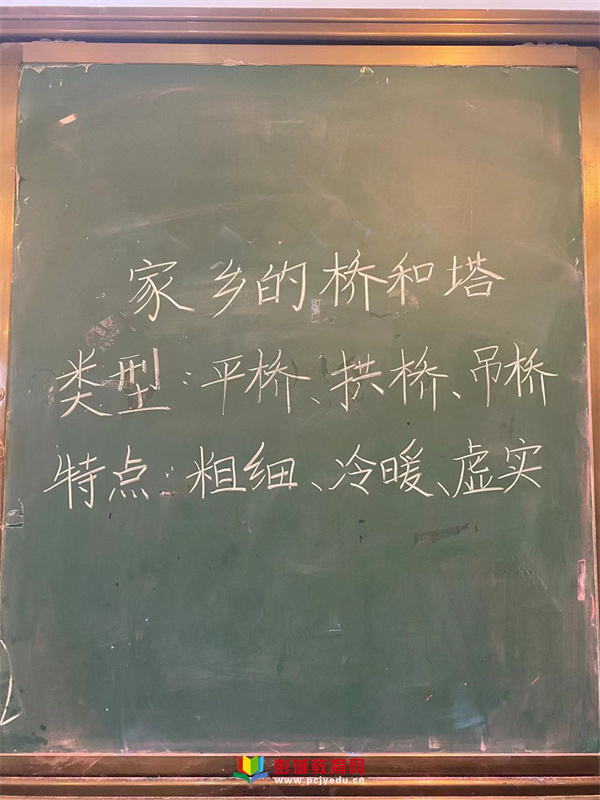 家乡的桥和塔
类型：平桥、拱桥、吊桥
特点：粗细、冷暖、虚实
彭城教育网
www.pcjyedu.cn